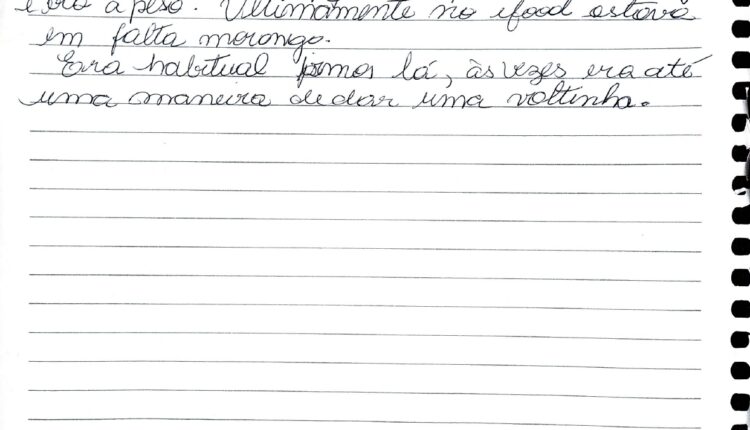 e era a peso. Ultimamente no ifood estava
em falta morango.
Era habitual irmos lá, às vezes era até
uma maneira de dar uma voltinha.